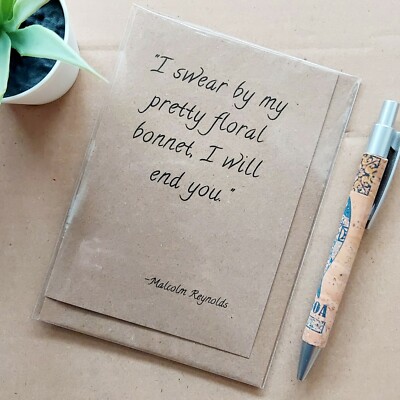 "I swear by my
pretty floral
bonnet, I will
end you."
-Malcolm Reynolds